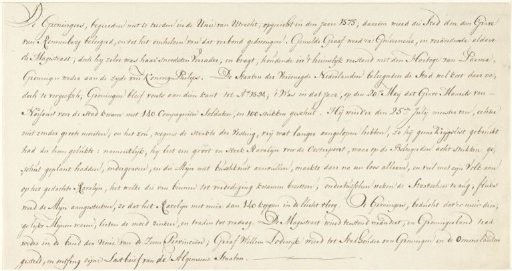 De Groningers, begeerden niet te treeden in de Unie van Utrecht, opgericht in den jaare 1575, daarom werd de Stad door den Grave
van Rennenberg belegerd, en tot het omhelzen van dat verbond gedwongen. Gemelde Graaf werd tot Gouverneur, en veranderde aldaar
de Magistraat; doch hy zelve was haast Verrader, en bragt, houdende in 't heimelyk verstand met den Hertog van Parma,
Groningen weder aan de zyde van Koning Philips. De Staaten der Vereenigde Nederlanden belegerden de Stad wel kort daar na,
doch te vergeefsch, Groningen bleef voorts aan dien kant tot A.o 1594. 't Was in dat jaar, op den 20.e May, dat Grave Maurits van
Nassau voor de Stad kwam met 140 Compagnien Soldaten, en 100 stukken geschut. Hy werd er den 25.sten July meester van, echter
niet zonder groote moeiten, en het zou, wegens de sterkte der Vesting, vry wat langer aangeloopen hebben, zo hy geene Krygslist gebruikt
had die hem gelukte: namentlyk, hy liet een groot en sterk Ravelyn voor de Oosterpoort, waar op de Belegerden acht stukken ge-
schut geplant hadden, ondergraven, en de Myn met buskruid aanvullen, maakte daar na een loos alarm, en viel met zyn Volk aan
op het gedachte Ravelyn, het welke die van binnen tot verdediging kwamen bezetten; ondertusschen weeken de Staatschen te rug, fluks
werd de Myn aangestoken, zo dat het Ravelyn met meer dan 140 koppen in de lucht vloog. De Groningers, beducht dat 'er meer der-
gelyke Mynen waren, lieten de moed zinken, en traden tot verdrag. De Magistraat werd terstond veranderd, en Groningerland trad
mede in de bond der Unie van de Zeven Provincien; Graaf Willem Lodewyk werd tot Stadhouder van Groningen en de Ommelanden
gesteld, en ontfing zyne Lastbrief van de Algemeene Staaten.